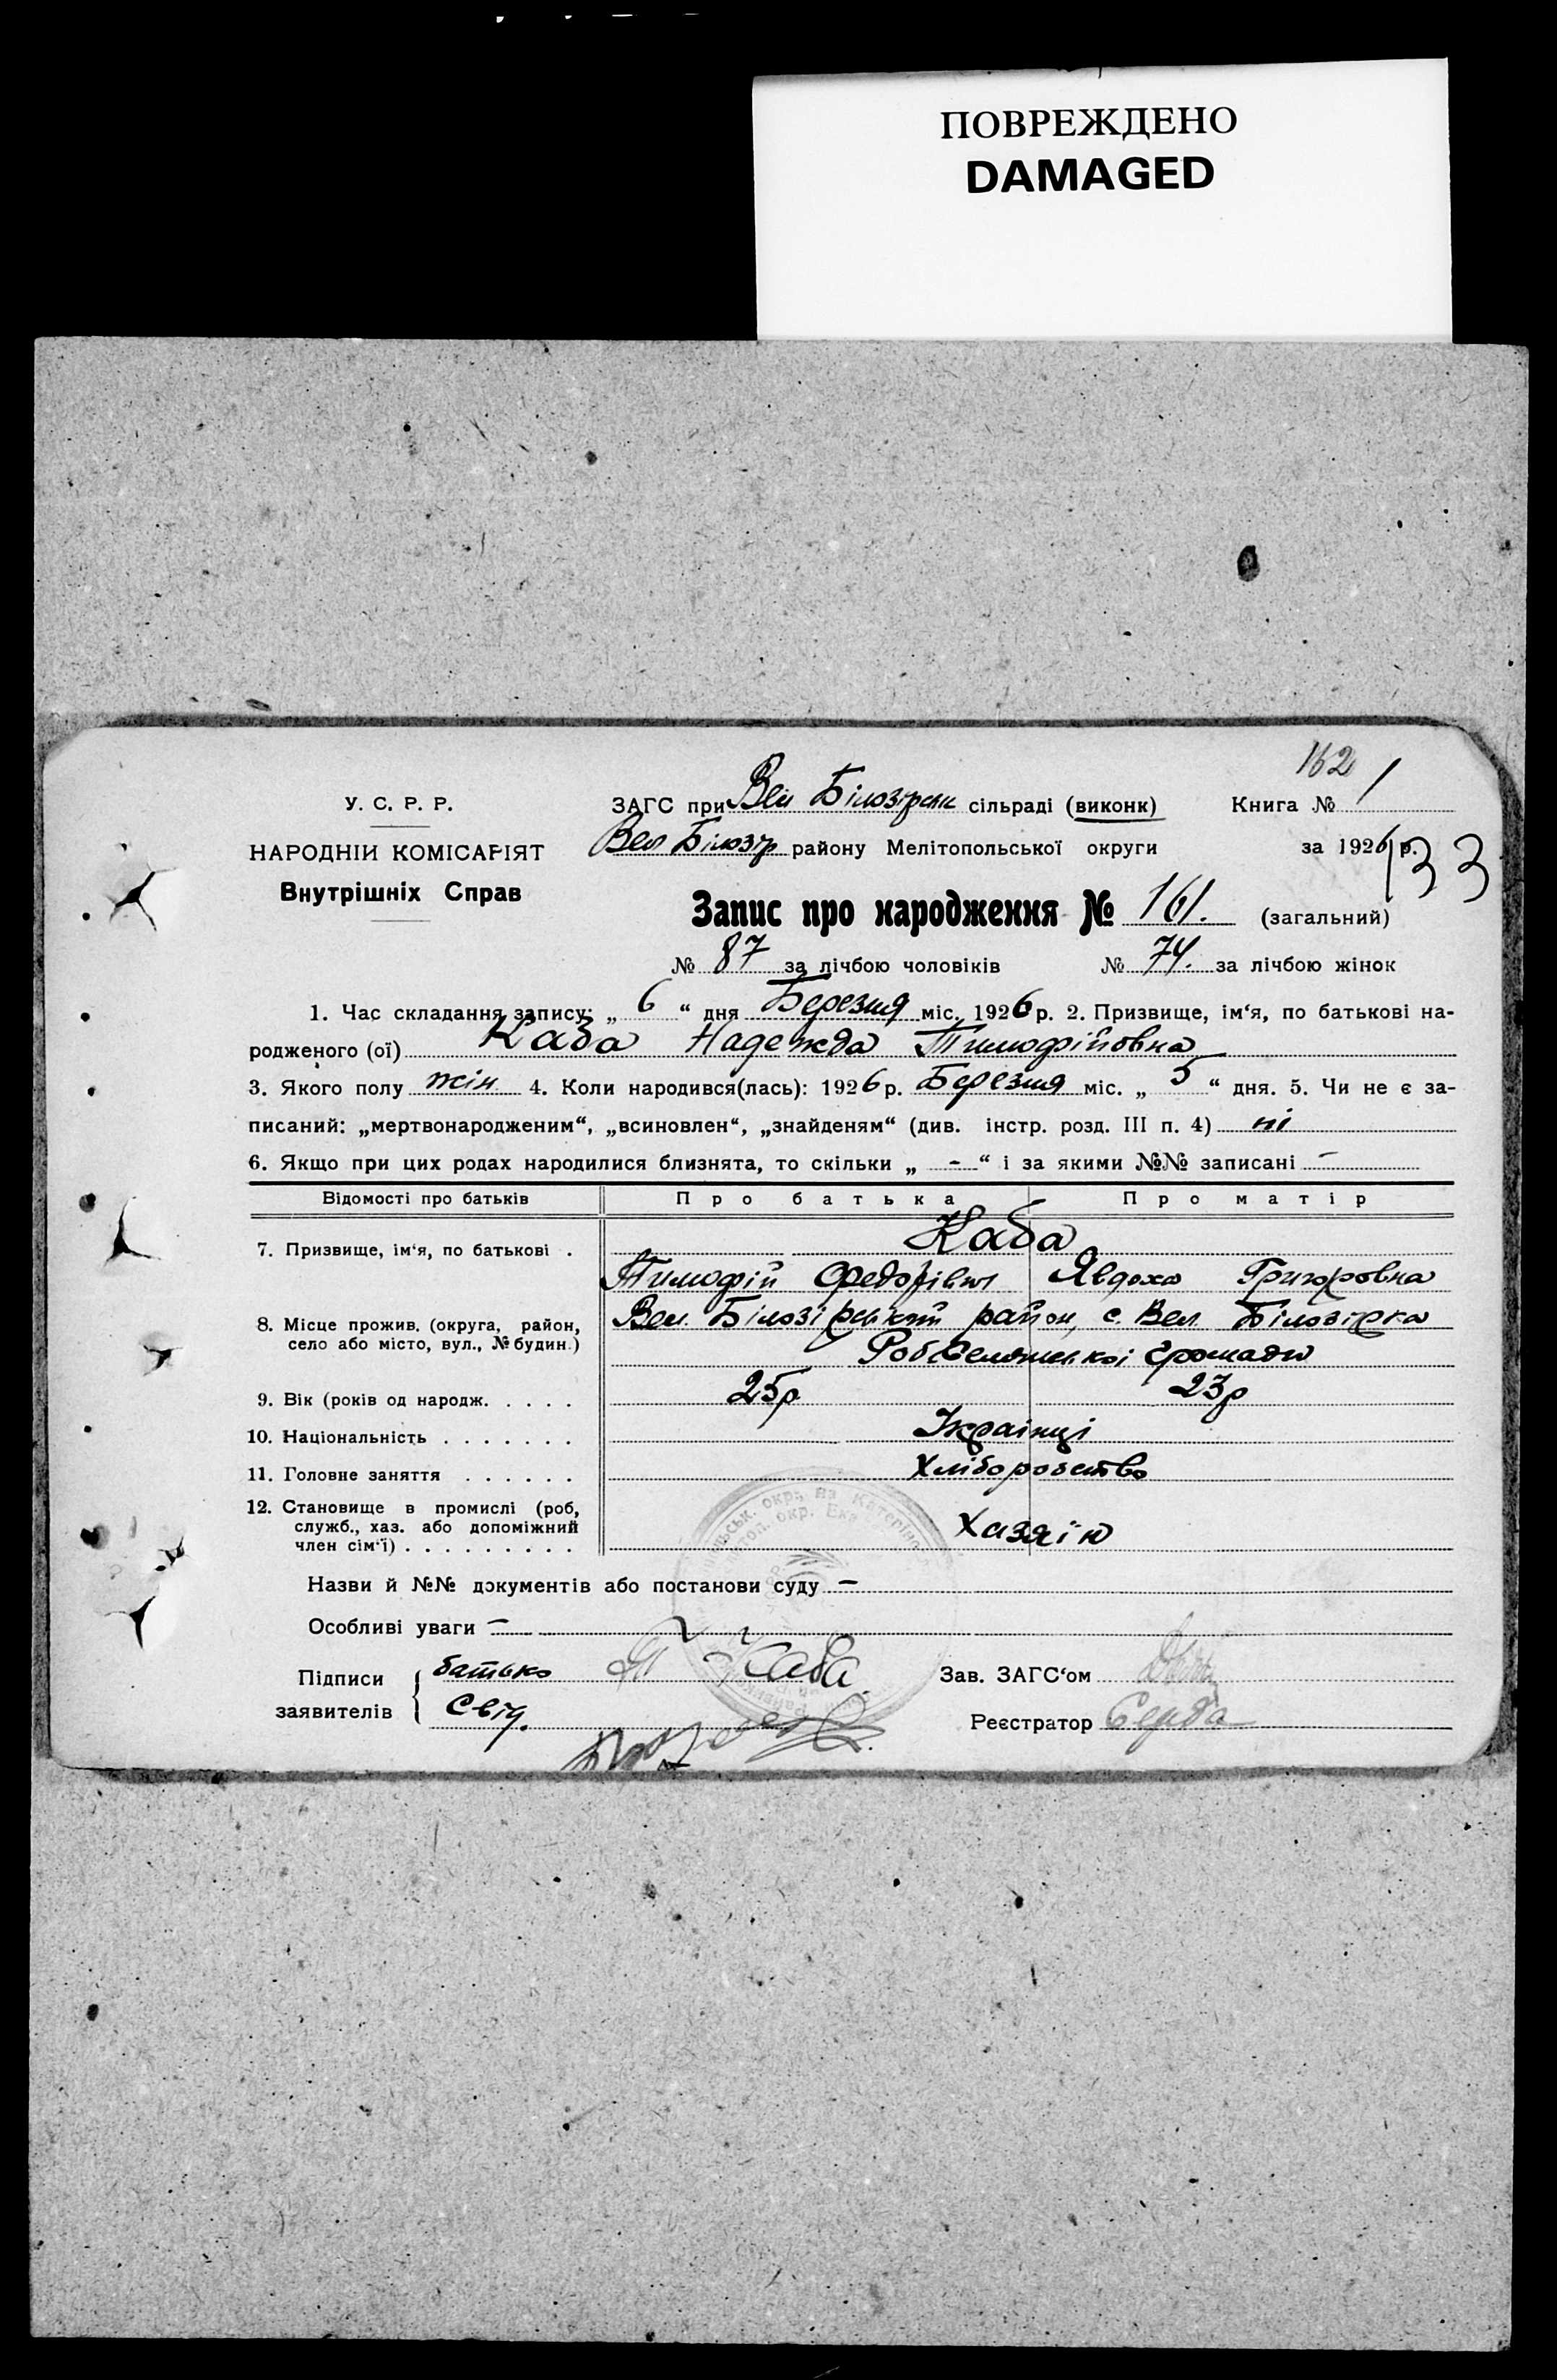 ПОВРЕЖДЕНО
DAMAGED
162
У. С. Р. Р.
ЗАГС при Вел Білозірськ сільраді (виконк)
Книга № 1
НАРОДНІЙ КОМІСАРІЯТ
Вел Білозір району Мелітопольської округи
за 1926 р.
133
Внутрішніх Справ
Запис про народження № 161. (загальний)
№ 87 за лічбою чоловіків № 74. за лічбою жінок
1. Час складання запису: „ 6 “ дня Березня міс. 1926 р. 2. Призвище, ім‘я, по батькові на-
родженого (ої) Каба Надежда Тимофіївна
3. Якого полу жін. 4. Коли народився(лась): 1926 р. Березня міс. „ 5 “ дня. 5. Чи не є за-
писаний: „мертвонародженим“, „всиновлен“, „знайденям“ (див. інстр. розд. III п. 4) ні
6. Якщо при цих родах народилися близнята, то скільки „ - “ і за якими №№ записані -
Відомості про батьків Про батька Про матір
7. Призвище, ім‘я, по батькові . Каба
Тимофій Федорівич Явдоха Григоровна
8. Місце прожив. (округа, район,
село або місто, вул., № будин.)
Вел. Білозірський район, с. Вел Білозірка
РобСелянської громади
9. Вік (років од народж. . . . . 25р 23р
10. Національність . . . . . . . Українці
11. Головне заняття . . . . . . Хліборобство
12. Становище в промислі (роб,
служб., хаз. або допоміжний
член сім‘ї) . . . . . . . . . Хазяїн
Назви й №№ документів або постанови суду -
Особливі уваги -
Підписи батько Т Каба
заявителів Свід.
Зав. ЗАГС‘ом
Реєстратор Серда